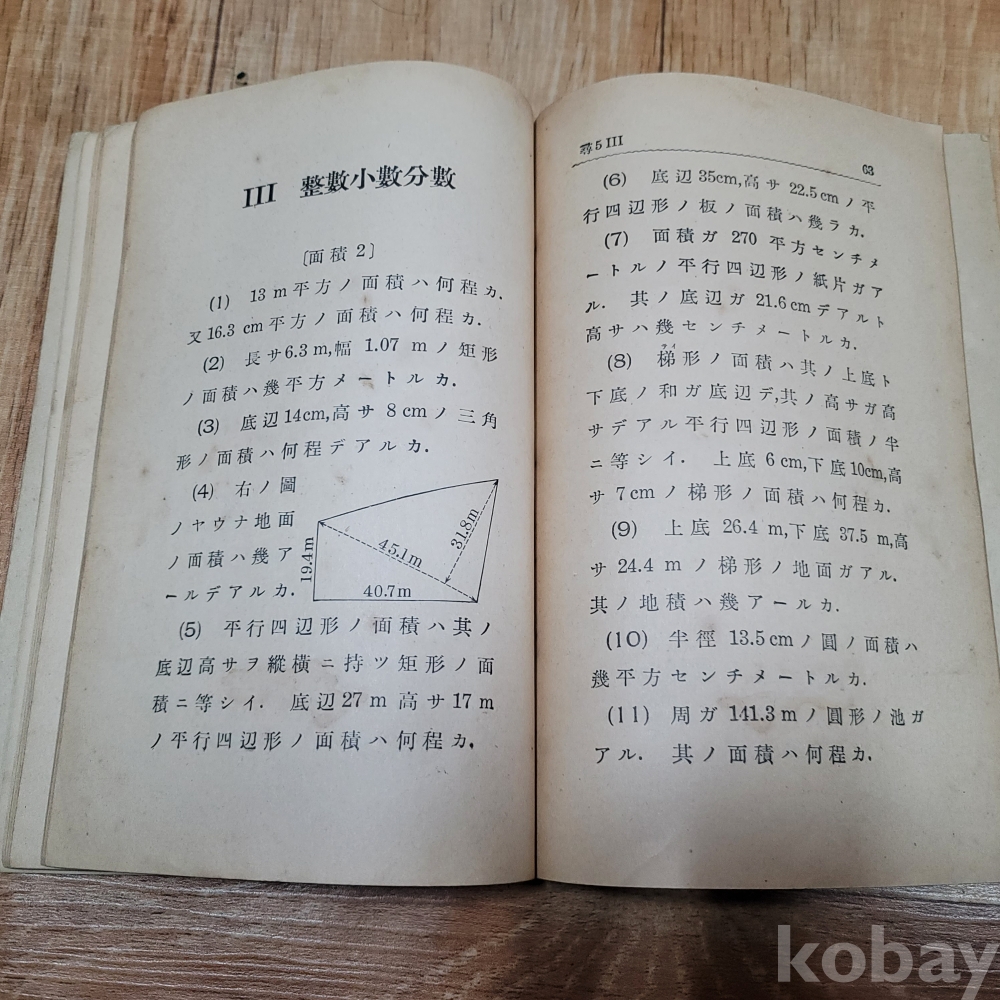 III 整數小數分數
〔面積 2〕
(1) 13 m平方ノ面積ハ何程カ.
又 16.3 cm平方ノ面積ハ何程カ.
(2) 長サ6.3 m,幅 1.07 m ノ矩形
ノ面積ハ幾平方メートルカ.
(3) 底辺14cm,高サ 8cmノ三角
形ノ面積ハ何程デアルカ.
(4) 右ノ圖
ノヤウナ地面
ノ面積ハ幾ア
ールデアルカ.
19.4m
45.1m
31.8m
40.7m
(5) 平行四辺形ノ面積ハ其ノ
底辺高サヲ縱横ニ持ツ矩形ノ面
積ニ等シイ. 底辺27 m 高サ17 m
ノ平行四辺形ノ面積ハ何程カ.
尋5 III
63
(6) 底辺35cm,高サ 22.5cmノ平
行四辺形ノ板ノ面積ハ幾ラカ.
(7) 面積ガ 270 平方センチメ
ートルノ平行四辺形ノ紙片ガア
ル. 其ノ底辺ガ 21.6cmデアルト
高サハ幾センチメートルカ.
(8) 梯形ノ面積ハ其ノ上底ト
下底ノ和ガ底辺デ,其ノ高サガ高
サデアル平行四辺形ノ面積ノ半
ニ等シイ. 上底 6cm,下底10cm,高
サ 7cmノ梯形ノ面積ハ何程カ.
(9) 上底 26.4 m,下底 37.5 m,高
サ 24.4 m ノ梯形ノ地面ガアル.
其ノ地積ハ幾アールカ.
(10) 半徑 13.5cmノ圓ノ面積ハ
幾平方センチメートルカ.
(11) 周ガ 141.3 mノ圓形ノ池ガ
アル. 其ノ面積ハ何程カ.
kobay